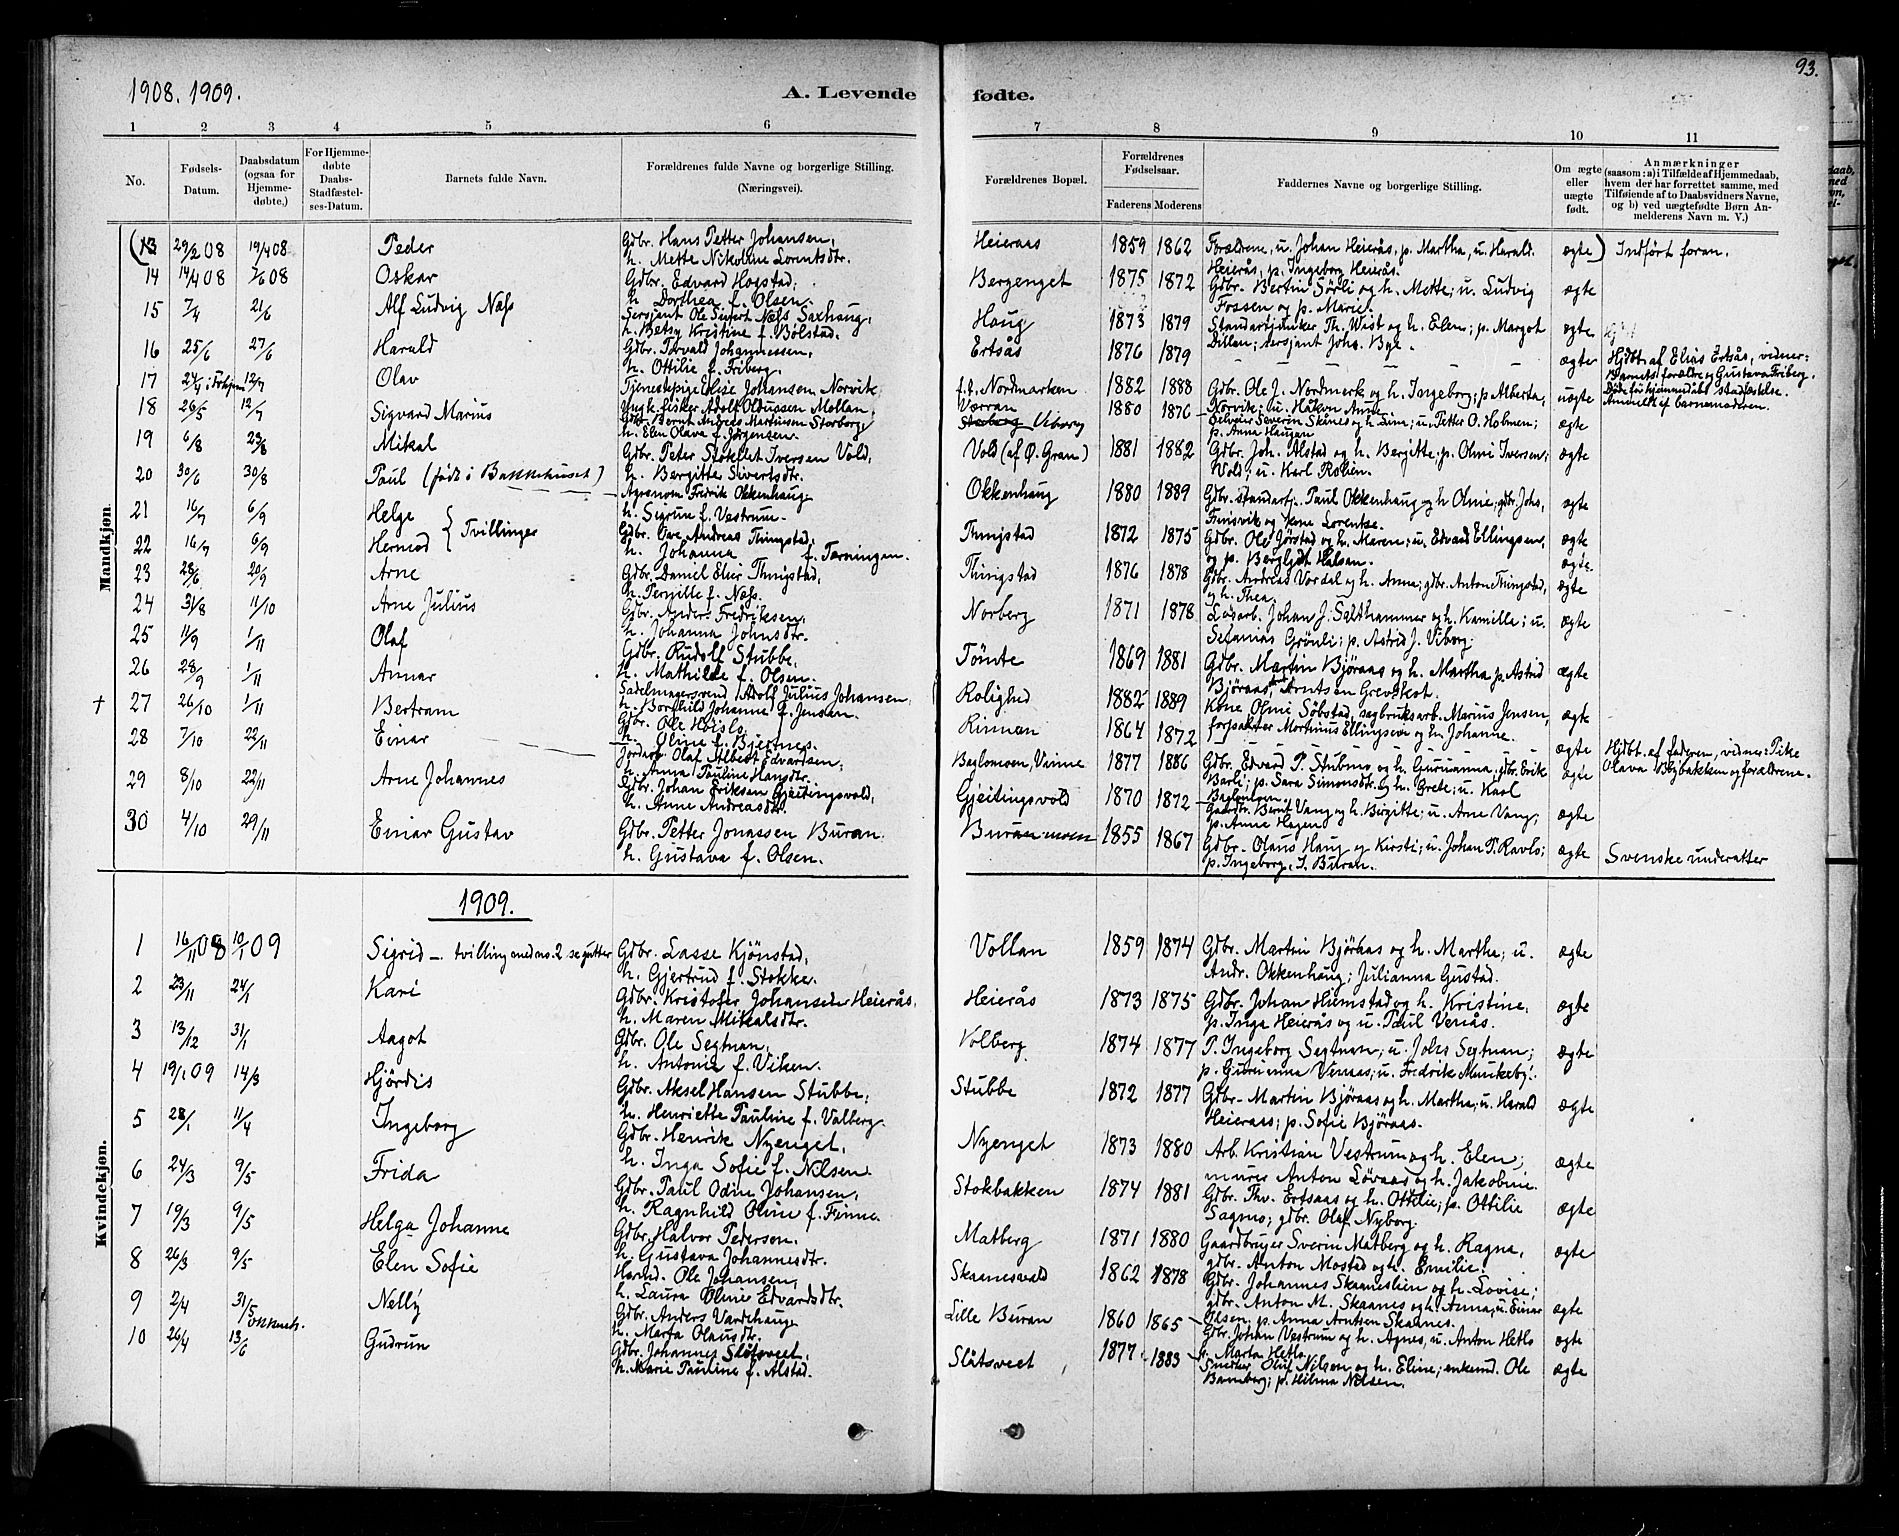 1908. 1909.
A. Levende fødte.
93.
1 2 3 4 5 6 7 8 9 10 11
No.
Fødsels-
Datum.
Daabsdatum
(ogsaa for
Hjemme-
døbte.)
For Hjemme-
døbte
Daabs-
Stadfæstel-
ses-Datum.
Barnets fulde Navn.
Forældrenes fulde Navne og borgerlige Stilling.
(Næringsvei).
Forældrenes Bopæl.
Forældrenes
Fødselsaar.
Faderens Moderens
Faddernes Navne og borgerlige Stilling.
Om ægte
eller
uægte
født.
Anmærkninger
(saasom: a) i Tilfælde af Hjemmedaab,
hvem der har forrettet samme, med
Tilføiende af to Daabsvidners Navne,
og b) ved uægtefødte Børn An-
melderens Navn m. V.)
Mandkjøn.
(13 29/2 08 19/4 08 Peder Gdbr. Hans Petter Johansen, Heieraas 1859 1862 Forældrene, u. Johan Heierås, p. Martha, u. Harald ægte) Indført foran.
h. Mette Nikoline Lorntsdtr. Heierås, p. Ingeborg Heierås.
14 14/4 08 7/6 08 Oskar Gdbr. Edvard Hogstad, Bergenget 1875 1872 Gdbr. Bertin Sørli og h. Mette; u. Ludvig ægte
h. Dorthea f. Olsen. Fossen og p. Marie.
15 7/4 21/6 Alf Ludvig Næss Sersjant Ole Sivert Næss Saxhaug, Haug 1873 1879 Standartjunker Th. Wist og h. Elen; p. Margot ægte
h. Betsy Kristine f. Bolstad. Dillen; sersjant Johs. Bye.
16 25/6 27/6 Harald Gdbr. Torvald Johannessen, Ertsås 1876 1879 ægte Hjdbt. af Elias Ertsås, vidner:
h. Ottilie f. Friberg. Barnets forældre og Gustava Friberg.
17 12/7 Olav Tjenestepige Elise Johansen Norvik, f.t. Nordmarken 1882 1888 Gdbr. Ole J. Nordmerk og h. Ingeborg; p. Alberta, uægte
Ungk. fisker Adolf Olausen Mollan, Værran Norvik; u. Håkon Anne. Anmeldt af barnemoderen.
18 26/5 12/7 Sigvard Marius Gdbr. Bernt Andreas Martinsen Storborg Viborg 1880 1876 Severin Skånes og h. Lina; u. Petter O. Holmen; ægte
h. Elen Olava f. Jørgensen. p. Anna Haugan
19 6/8 23/8 Mikal Gdbr. Peter Stokflet Iversen Vold, Vold (af Ø. Gran) 1881 1882 Gdbr. Joh. Alstad og h. Bergitte; p. Olmi Iversen; ægte
h. Bergitte Sivertsdtr. Wold; u. Karl Rolien.
20 30/6 30/8 Paul (født i Bakkehuset) Agronom Fredrik Okkenhaug Okkenhaug 1880 1889 Gdbr. standartj. Paul Okkenhaug og h. Oline; gdbr. Johs. ægte
h. Sigrun f. Vestrum. Finsvik og kone Lorentse.
21 16/7 6/9 Helge } Tvillinger Gdbr. Ove Andreas Thingstad, Thingstad 1872 1875 Gdbr. Ole Jørstad og h. Maren; u. Edvard Ellingsen, ægte
22 16/7 6/9 Hermod h. Johanna f. Tørningen. og p. Bergljot Halsan. ægte.
23 28/6 20/9 Arne Gdbr. Daniel Elier Thingstad, Thingstad 1876 1878 Gdbr. Andreas Vordal og h. Anna; gdbr. Anton Thingstad, ægte
h. Pernille f. Næss. og h. Thea.
24 31/8 11/10 Arne Julius Gdbr. Anders Fredriksen, Norberg 1871 1878 Løsarb. Johan J. Salthammer og h. Kamille; u. ægte
h. Johanna Johnsdtr. Sefanias Grönli; p. Astrid J. Viborg.
25 11/9 1/11 Olaf Gdbr. Rudolf Stubbe, Tömte 1869 1881 Gdbr. Martin Bjøraas og h. Martha p. Astrid ægte
h. Mathilde f. Olsen. Bjøraas, Arntsen Grevskot.
26 28/9 1/11 Annar Sadelmagersvend Adolf Julius Johansen, Rolighed 1882 1889 Kone Olmi Söbstad, sagbruksarb. Marius Jensen, ægte
h. Borghild Johanne f. Jensen. forpakter Mortinus Ellingsen og h. Johanne.
+ 27 26/10 1/11 Bertram Gdbr. Ole Hojslo, Rinnan 1864 1872 ægte Hjdbt. af faderen, vidner: Pike
h. Oline f. Bjertnes. Olava Bybakken og forældrene.
28 7/10 22/11 Einar Jordarb. Olaf Albert Edvartsen, Baglomoen, Vinne 1877 1886 Gdbr. Edvard P. Stubmo og h. Gurianna; gdbr. Erik ægte
h. Anna Pauline Hansdtr. Barli; p. Sara Simonsdtr. og h. Grete; u. Karl
29 8/10 22/11 Arne Johannes Gdbr. Johan Eriksen Gjeitingsvold, Gjeitingsvold 1870 1872 Gaardbr. Bernt Vang og h. Birgitte; u. Arne Vang; ægte
h. Anne Andreasdtr. p. Anne Hagen
30 4/10 29/11 Einar Gustav Gdbr. Petter Jonassen Buran. Buran moen 1855 1867 Gdbr. Olaus Haug og Kirsti; u. Johan P. Ravlo; ægte Svenske undersatter
h. Gustava f. Olsen. p. Ingeborg J. Buran.
1909.
Kvindekjøn.
1 16/11 08 10/1 09 Sigrid - tvilling med no. 2 se gutter Gdbr. Lasse Kjønstad, Vollan 1859 1874 Gdbr. Martin Björaas og h. Marthe; u. ægte
h. Gjertrud f. Stokke. Andr. Okkenhaug; Julianna Gustad.
2 23/11 24/1 Kari Gdbr. Kristofer Johansen Heierås, Heierås 1873 1875 Gdbr. Johan Hiemstad og h. Kristine, ægte
h. Maren Mikalsdtr. p. Inga Heierås og u. Paul Venås.
3 13/12 31/1 Aagot Gdbr. Ole Segtnan, Volberg 1874 1877 P. Ingeborg Segtnan; u. Johs Segtnan; ægte
h. Antonie f. Viken. p. Gurianna Venaas; u. Fredrik Munkeby.
4 19/1 09 14/3 Hjördis Gdbr. Aksel Hansen Stubbe, Stubbe 1872 1877 Gdbr. Martin Björaas og h. Martha, u. Harald ægte
h. Henriette Pauline f. Valberg. Heieraas; p. Sofie Björaas.
5 28/1 11/4 Ingeborg Gdbr. Henrik Nyenget, Nyenget 1873 1880 Arb. Kristian Vestrum og h. Elen; ægte
h. Inga Sofie f. Nilsen murer Anton Løvaas og h. Jakobine.
6 24/3 9/5 Frida Gdbr. Paul Odin Johansen, Stokbakken 1874 1881 Gdbr. Thv. Ertsaas og h. Ottilie; p. Ottilie ægte
h. Ragnhild Oline f. Finne. Sagmo; gdbr. Olaf Nyborg.
7 19/3 9/5 Helga Johanne Gdbr. Halvor Pedersen. Matberg 1871 1880 Gaardbruger Sverin Matberg og h. Ragna, ægte
h. Gustava Johannesdtr. gdbr. Anton Mostad og h. Emilie.
8 26/3 9/5 Elen Sofie Husmd. Ole Johansen, Skaanesvald 1862 1878 Gdbr. Johannes Skaaneslien og h. Lovise;
h. Laura Oline Edvardsdtr. gdbr. Anton M. Skaanes og h. Anna, u. Einar ægte
9 2/4 31/5 Nelly Gdbr. Anders Vardehaug Lille Buran 1860 1865 Olsen, p. Anna Arntsen Skaanes.
h. Marta Olausdtr. Gdbr. Johan Vestrum og h. Agnes, u. Anton Hetlo ægte
p. Marta Hetlo
10 26/4 13/6 Gudrun Gdbr. Johannes Slåtsveet, Slåtsveet 1877 1883 Smedker Oluf Nilsen og h. Eline; enkemd. Ole ægte
h. Marie Pauline f. Alstad. Bamberg; p. Hilma Nilsen.